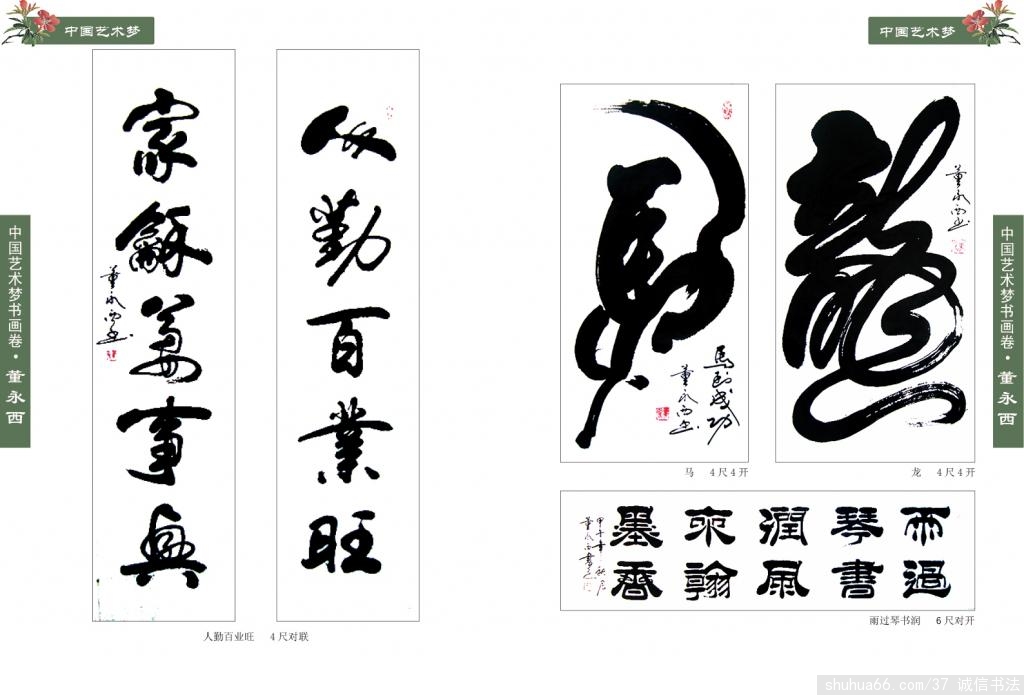 中国艺术梦
中国艺术梦
中国艺术梦书画卷·董永西
中国艺术梦书画卷·董永西
人勤百業旺
家龢萬事興
董永西书
人勤百业旺 4尺对联
馬
馬到成功
董永西书
马 4尺4开
龍
董永西书
龙 4尺4开
雨過
琴書
潤風
來翰
墨香
甲午年秋月
董永西書
雨过琴书润 6尺对开
shuhua66.com/37 诚信书法